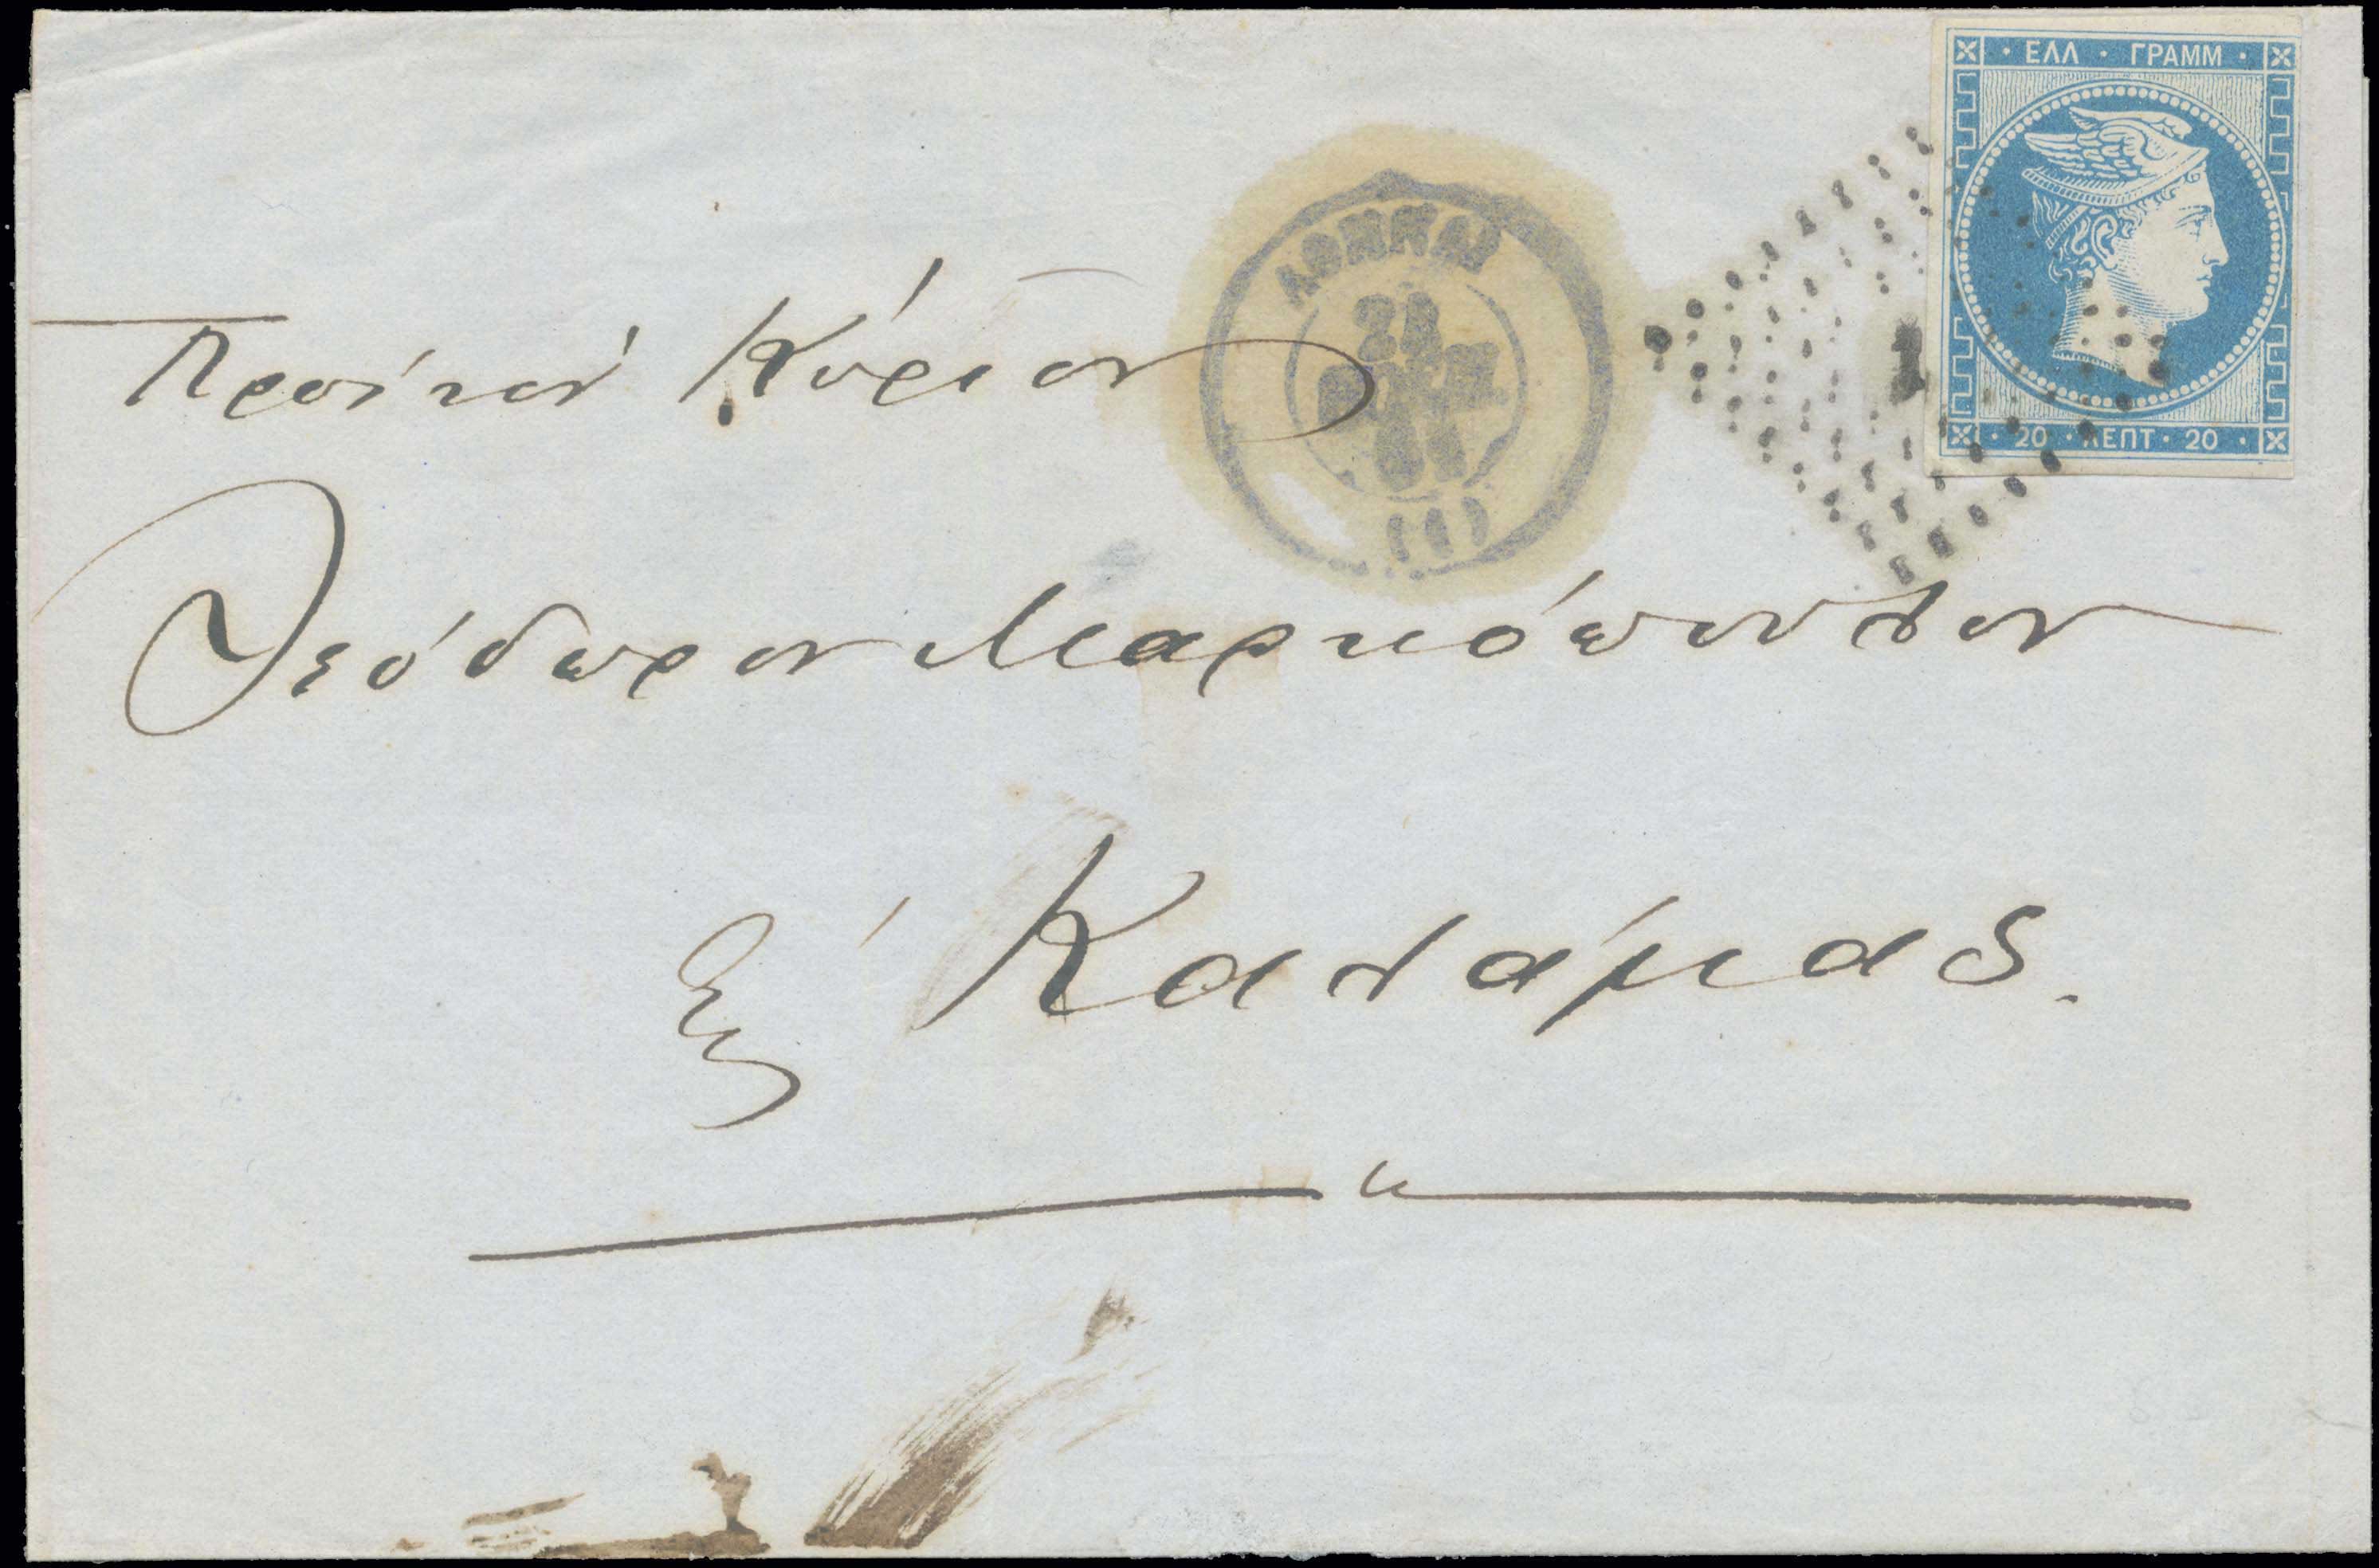 ΕΛΛ · ΓΡΑΜΜ
20 · ΛΕΠΤ · 20
ΑΘΗΝΑΙ
(1)
1
Πρός τον Κύριον
Θεόδωρον Μαρκόπουλον
Εις Καλάμας.